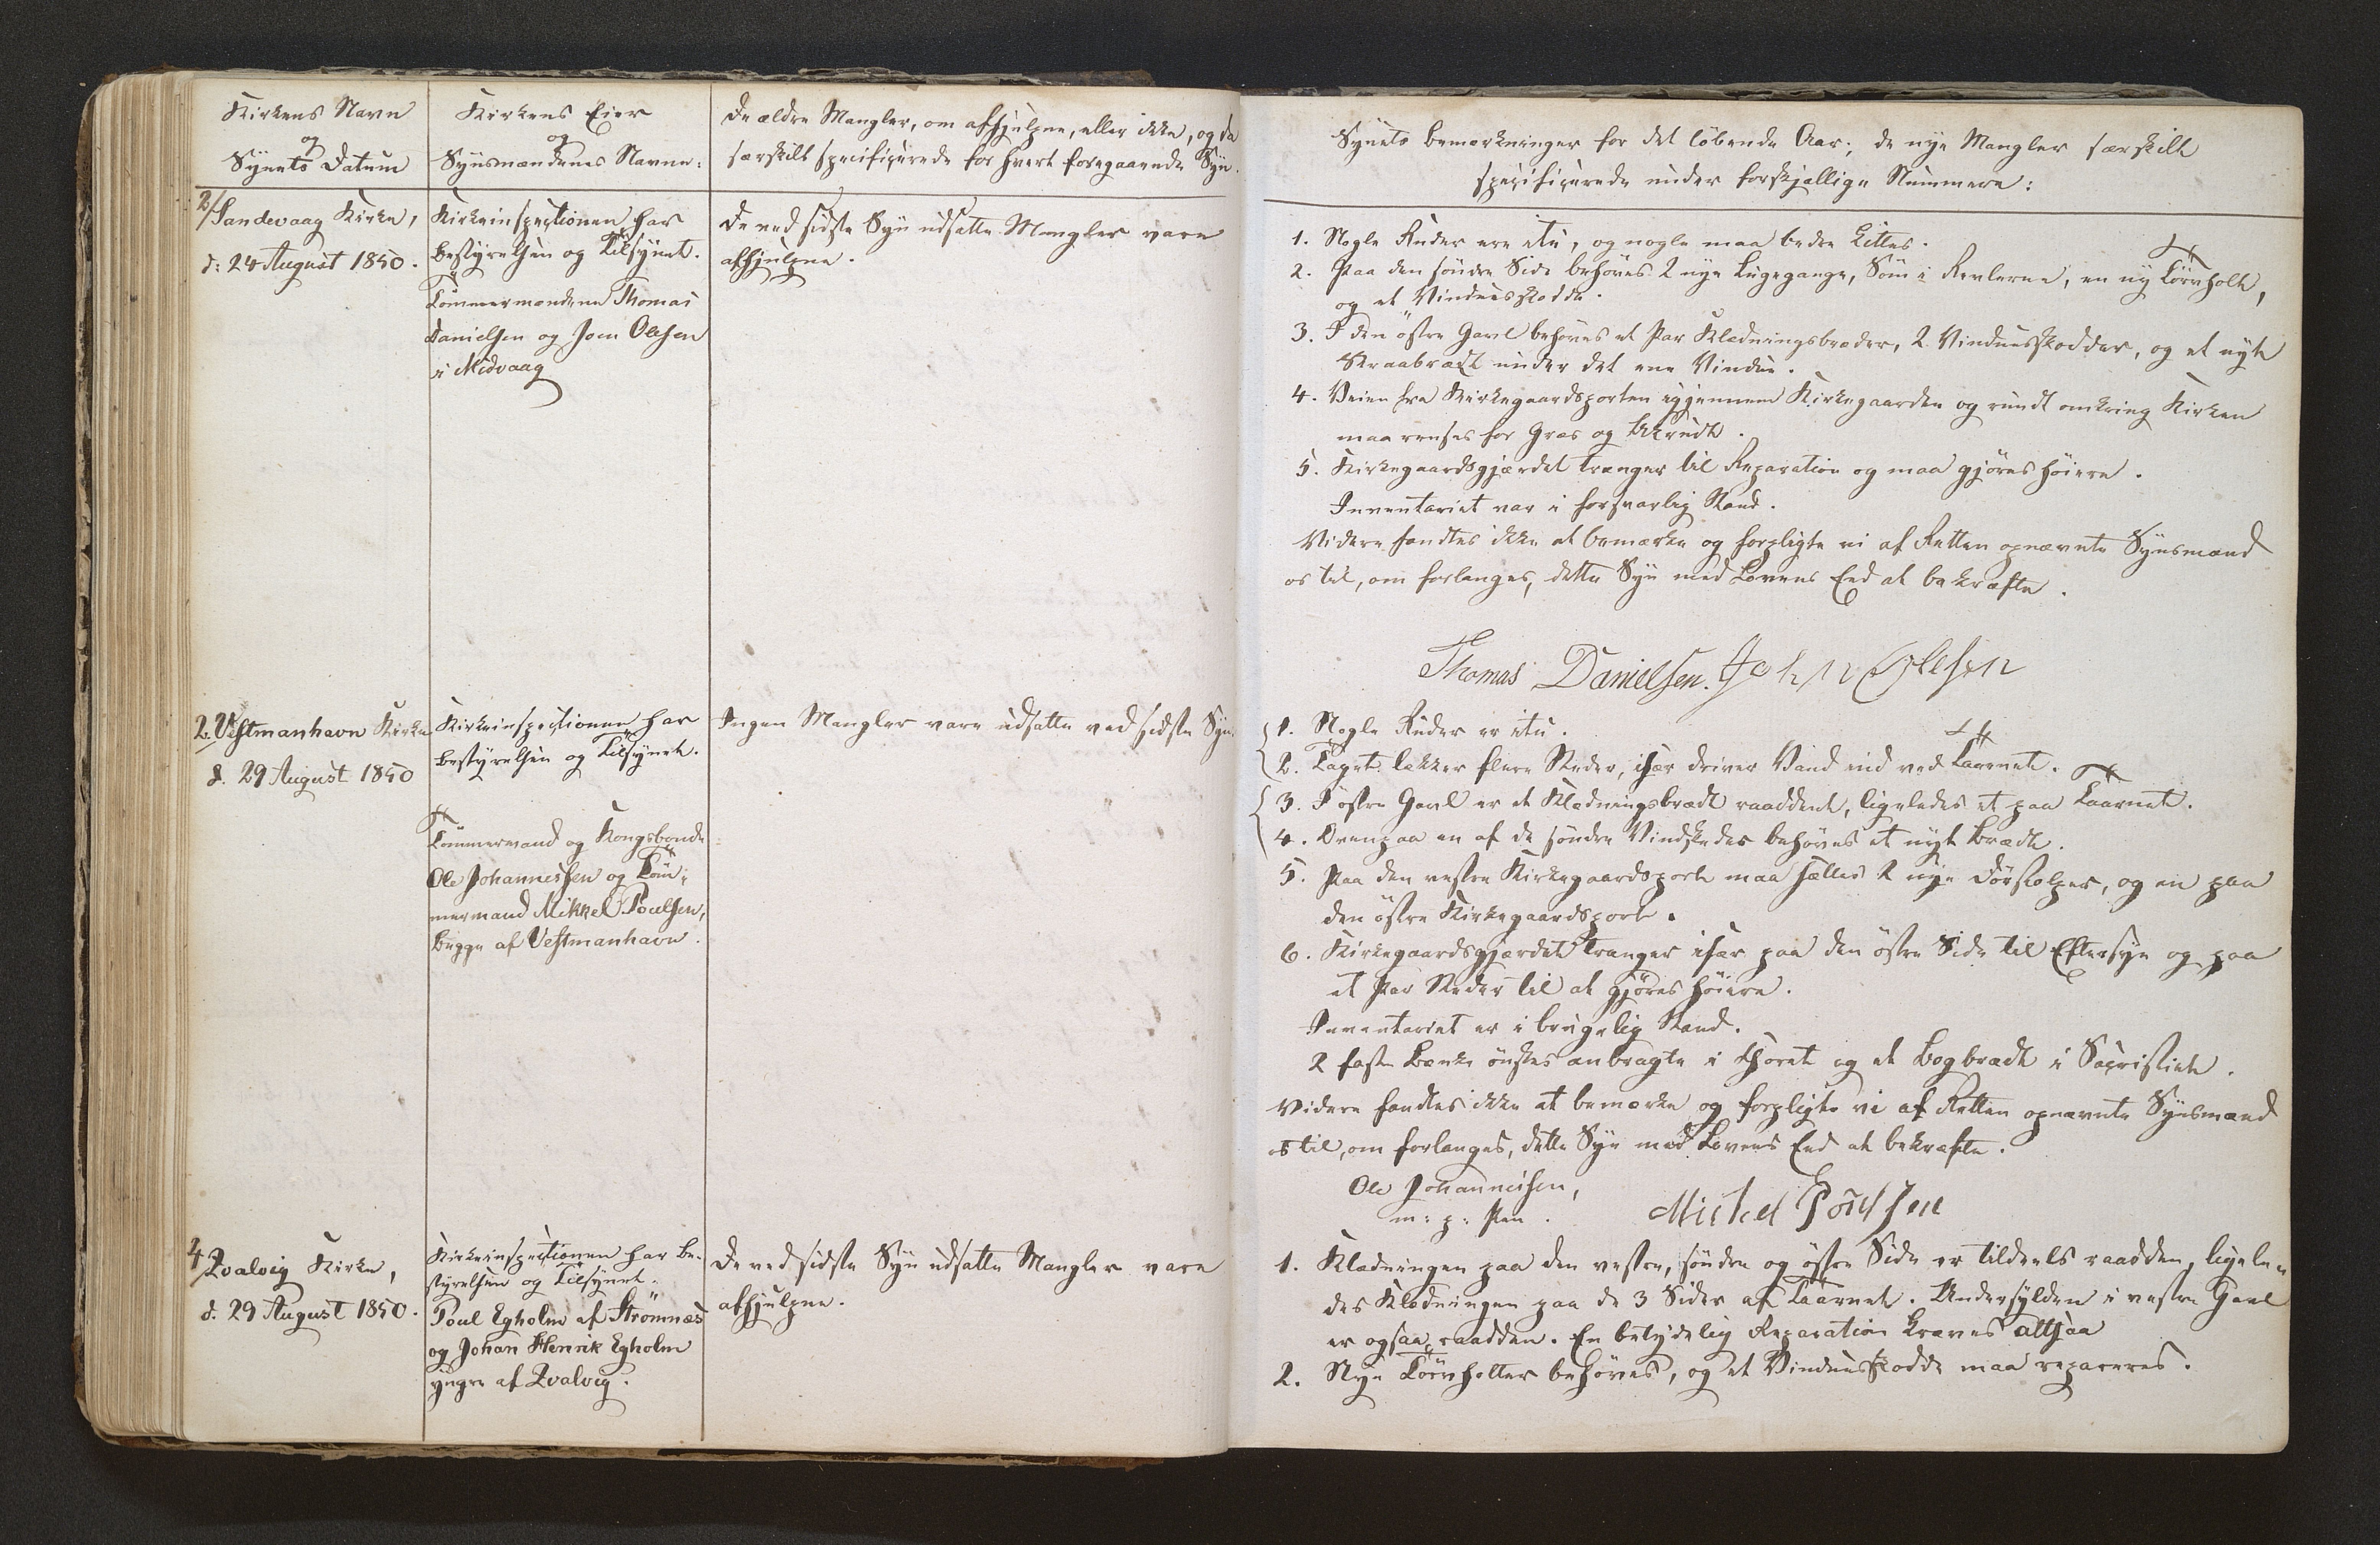 Kirkens Navn
og
Synets Datum
Kirkens Eier
og
Synsmændenes Navne:
De ældre Mangler, om afhjulpne, eller ikke, og da
særskilt specificerede for hvert foregaaende Syn.
2/ Sandevaag Kirke,
d: 24 August 1850.
Kirkeinspectionen har
Bestyrelsen og Tilsynet.
Tømmermændene Thomas
Danielsen og Joen Olesen
i Midvaag
De ved sidste Syn udsatte Mangler vare
afhjulpne.
2. Vestmanhavn Kirke
d. 29 August 1850
Kirkeinspectionen har
Bestyrelsen og Tilsynet.
Tømmermand og Kongsbonde
Ole Johannessen og Tøm-
mermand Mikkel Poulsen,
begge af Vestmanhavn.
Ingen Mangler vare udsatte ved sidste Syn.
4/ Qvalvig Kirke,
d. 29 August 1850.
Kirkeinspectionen har Be-
styrelsen og Tilsynet.
Poul Egholm af Strømnæs
og Johan Henrik Egholm
yngre af Qvalvig.
De ved sidste Syn udsatte Mangler vare
afhjulpne.
Synets Bemærkninger for det løbende Aar; de nye Mangler særskilt
specificerede under forskjellige Nummere:
1. Nogle Ruder ere itu, og nogle maa bedre kittes.
2. Paa den søndre Side behøves 2 nye Lugegange, Søm i Revlerne, en ny Tørvholt,
og et Vinduesskodde.
3. I den østre Gavl behøves et Par Klædningsbræder, 2 Vinduesskodder, og et nyt
Skraabrædt under det ene Vindue.
4. Veien fra Kirkegaardsporten igjennem Kirkegaarden og rundt omkring Kirken
maa renses for Græs og Ukrudt.
5. Kirkegaardsgjærdet trænger til Reparation og maa gjøres høiere.
Inventariet var i forsvarlig Stand.
Videre fandtes ikke at bemærke og forpligte vi af Retten opnævnte Synsmænd
os til, om forlanges, dette Syn med Lovens Eed at bekræfte.
Thomas Danielsen. John Olesen
1. Nogle Ruder er itu.
2. Taget lækker flere Steder, især driver Vand ind ved Taarnet.
3. I østre Gavl er et Klædningsbrædt raaddent, ligeledes et paa Taarnet.
4. Ovenpaa en af de søndre Vindskeder behøves et nyt Brædt.
5. Paa den vestre Kirkegaardsport maa sættes 2 nye Dørstolper, og en paa
den østre Kirkegaardsport.
6. Kirkegaardsgjærdet trænger især paa den østre Side til Eftersyn og paa
et Par Steder til at gjøres høiere.
Inventariet er i brugelig Stand.
2 faste Bænke ønskes anbragte i Choret og et Bogbrædt i Sacristiet.
Videre fandtes ikke at bemærke og forpligte vi af Retten opnævnte Synsmænd
os til, om forlanges, dette Syn med Lovens Eed at bekræfte.
Ole Johannesen,
m: p: Pen.
Mickel Poulsen
1. Klædningen paa den vestre, søndre og østre Side er tildeels raadden, ligele-
des Klædningen paa de 3 Sider af Taarnet. Undersylden i vestre Gavl
er ogsaa raadden. En betydelig Reparation kræves altsaa
2. Nye Tørvholter behøves, og et Vinduesskodde maa repareres.